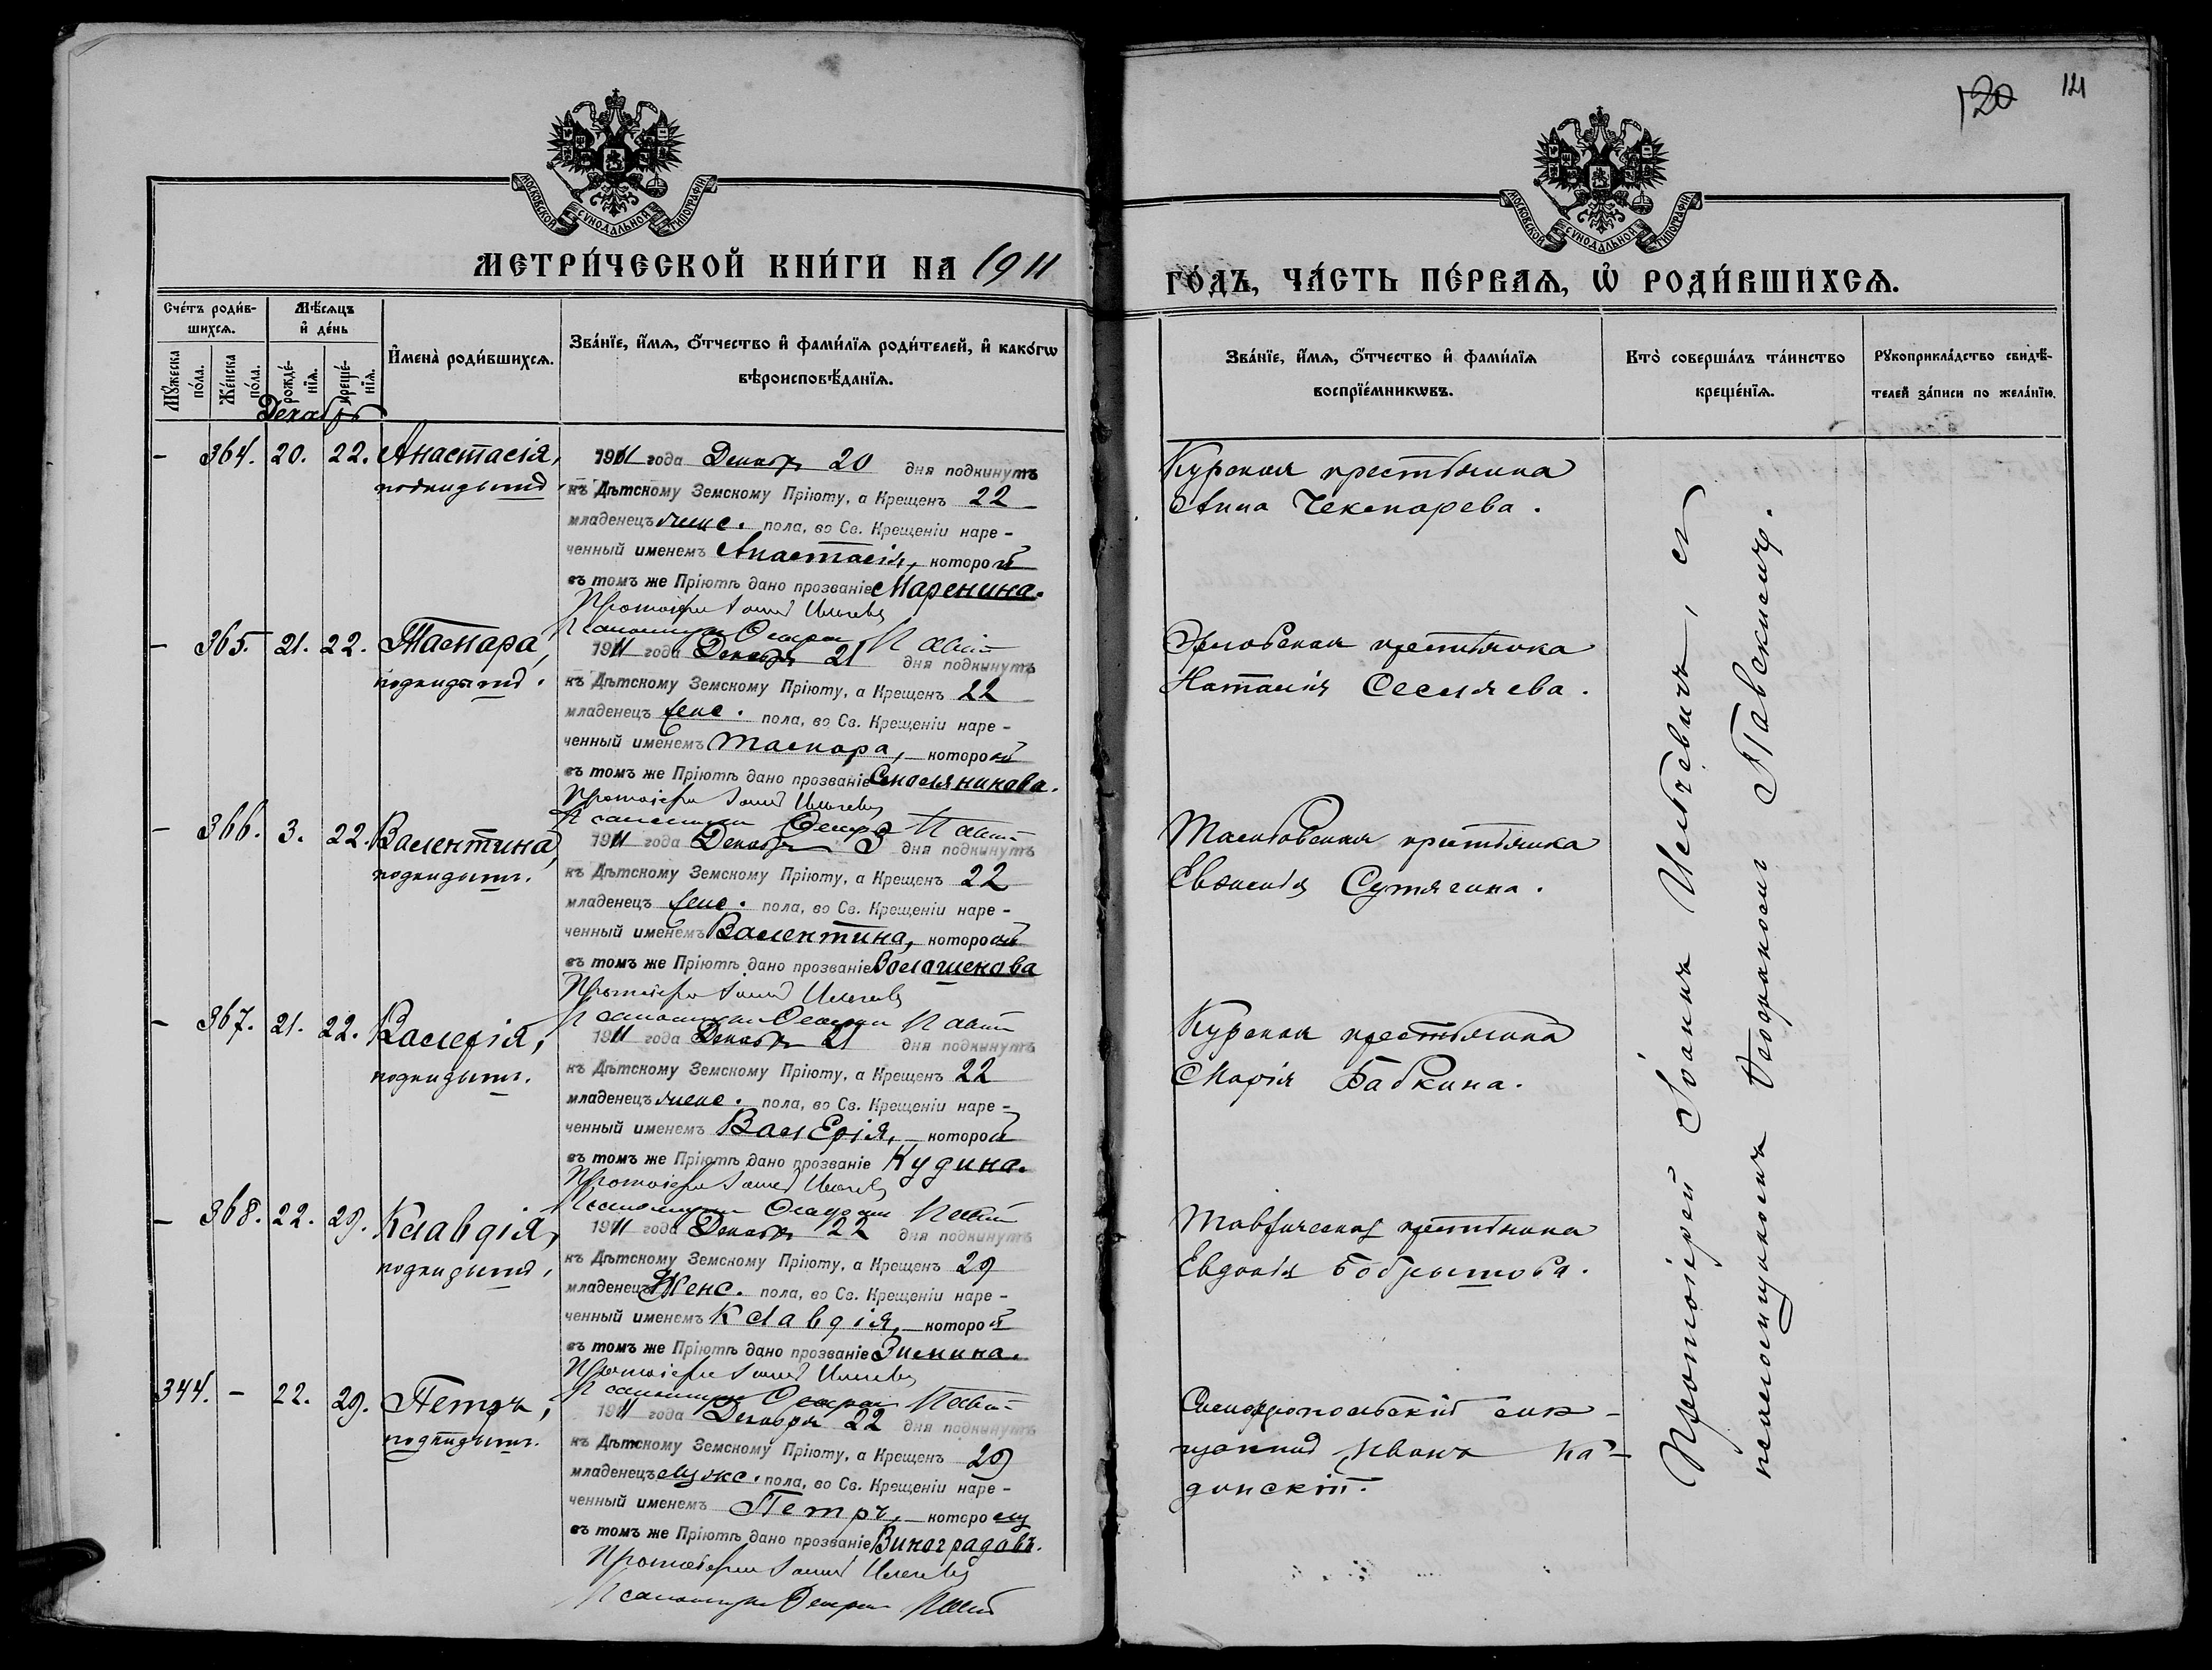 120
121
МОСКОВСКОЙ СУНОДАЛЬНОЙ ТИПОГРАФІИ
МОСКОВСКОЙ СУНОДАЛЬНОЙ ТИПОГРАФІИ
МЕТРИ́ЧЕСКОЙ КНИ́ГИ НА 1911
ГО́ДЪ, ЧА́СТЬ ПЕ́РВАѦ, Ѡ҆ РОДИ́ВШИХСѦ.
Сче́тъ роди́в-
шихсѧ.
Мѣ́сѧцъ
и҆ де́нь
Мꙋ́жеска
по́ла.
Же́нска
по́ла.
рожде́-
нїѧ.
креще́-
нїѧ.
И҆мена̀ роди́вшихсѧ.
Зва́нїе, и҆́мѧ, ѻ҆́тчество и҆ фами́лїѧ роди́телей, и҆ како́гѡ
вѣроисповѣ́данїѧ.
Зва́нїе, и҆́мѧ, ѻ҆́тчество и҆ фами́лїѧ
воспрїе́мникѡвъ.
Кто̀ соверша́лъ та́инство
креще́нїѧ.
Рꙋкоприкла́дство свидѣ́-
телей за́писи по жела́нїю.
Декабрь
- 364. 20. 22. Анастасія,
подкидышъ
1911 года Декабря 20 дня подкинутъ
къ Дѣтскому Земскому Пріюту, а Крещенъ 22
младенецъ женс. пола, во Св. Крещеніи наре-
ченный именемъ Анастасія, которой
въ томъ же Пріютѣ дано прозваніе Маренина.
Протоіерей Іоаннъ
Псаломщикъ
Курская крестьянка
Анна Чекмарева.
- 365. 21. 22. Тамара,
подкидышъ.
1911 года Декабря 21 дня подкинутъ
къ Дѣтскому Земскому Пріюту, а Крещенъ 22
младенецъ женс. пола, во Св. Крещеніи наре-
ченный именемъ Тамара, которой
въ томъ же Пріютѣ дано прозваніе Смолянинова.
Протоіерей Іоаннъ
Псаломщикъ
Орловская крестьянка
Наталія
- 366. 3. 22. Валентина,
подкидышъ.
1911 года Декабря 3 дня подкинутъ
къ Дѣтскому Земскому Пріюту, а Крещенъ 22
младенецъ женс. пола, во Св. Крещеніи наре-
ченный именемъ Валентина, которой
въ томъ же Пріютѣ дано прозваніе Волошенова
Протоіерей Іоаннъ
Псаломщикъ
Тамбовская крестьянка
Евгенія Сутягина.
- 367. 21. 22. Валерія,
подкидышъ.
1911 года Декабря 21 дня подкинутъ
къ Дѣтскому Земскому Пріюту, а Крещенъ 22
младенецъ женс. пола, во Св. Крещеніи наре-
ченный именемъ Валерія, которой
въ томъ же Пріютѣ дано прозваніе Кудина.
Протоіерей Іоаннъ
Псаломщикъ
Курская крестьянка
Марія Бабкина.
- 368. 22. 29. Клавдія,
подкидышъ,
1911 года Декабря 22 дня подкинутъ
къ Дѣтскому Земскому Пріюту, а Крещенъ 29
младенецъ Женс. пола, во Св. Крещеніи наре-
ченный именемъ Клавдія, которой
въ томъ же Пріютѣ дано прозваніе Зимина.
Протоіерей Іоаннъ
Псаломщикъ
Таврическая крестьянка
Евдокія Бобрышова.
344. - 22. 29. Петръ,
подкидышъ.
1911 года Декабря 22 дня подкинутъ
къ Дѣтскому Земскому Пріюту, а Крещенъ 29
младенецъ мужс. пола, во Св. Крещеніи наре-
ченный именемъ Петръ, которому
въ томъ же Пріютѣ дано прозваніе Виноградовъ.
Протоіерей Іоаннъ
Псаломщикъ
Симферопольскій мѣ-
щанинъ Иванъ Ка-
динскій.
Протоіерей Іоаннъ съ
псаломщикомъ Павскимъ.